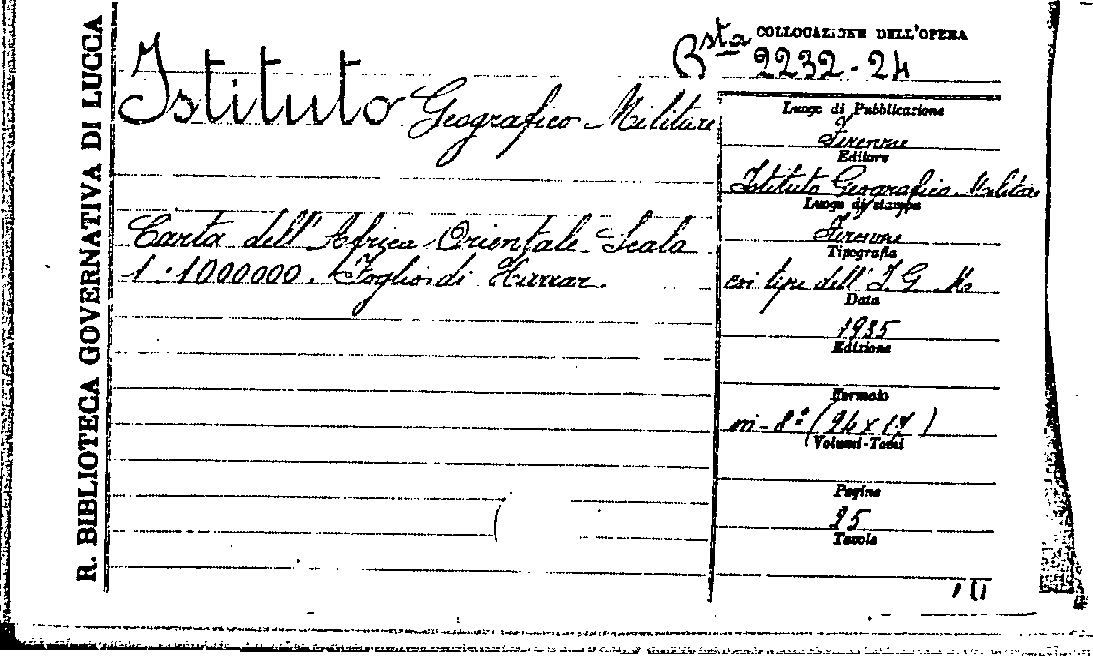 R. BIBLIOTECA GOVERNATIVA DI LUCCA
Istituto Geografico Militare
Carta dell'Africa Orientale Scala
1:1000000. Foglio di Harrar.
Bsta
COLLOCAZIONE DELL'OPERA
2232.24
Luogo di Pubblicazione
Firenze
Editore
Istituto Geografico Militare
Luogo di stampa
Firenze
Tipografia
coi tipi dell'I. G. M.
Data
1935
Edizione
Formato
in-8° (24x17)
Volumi-Tomi
Pagine
25
Tavole